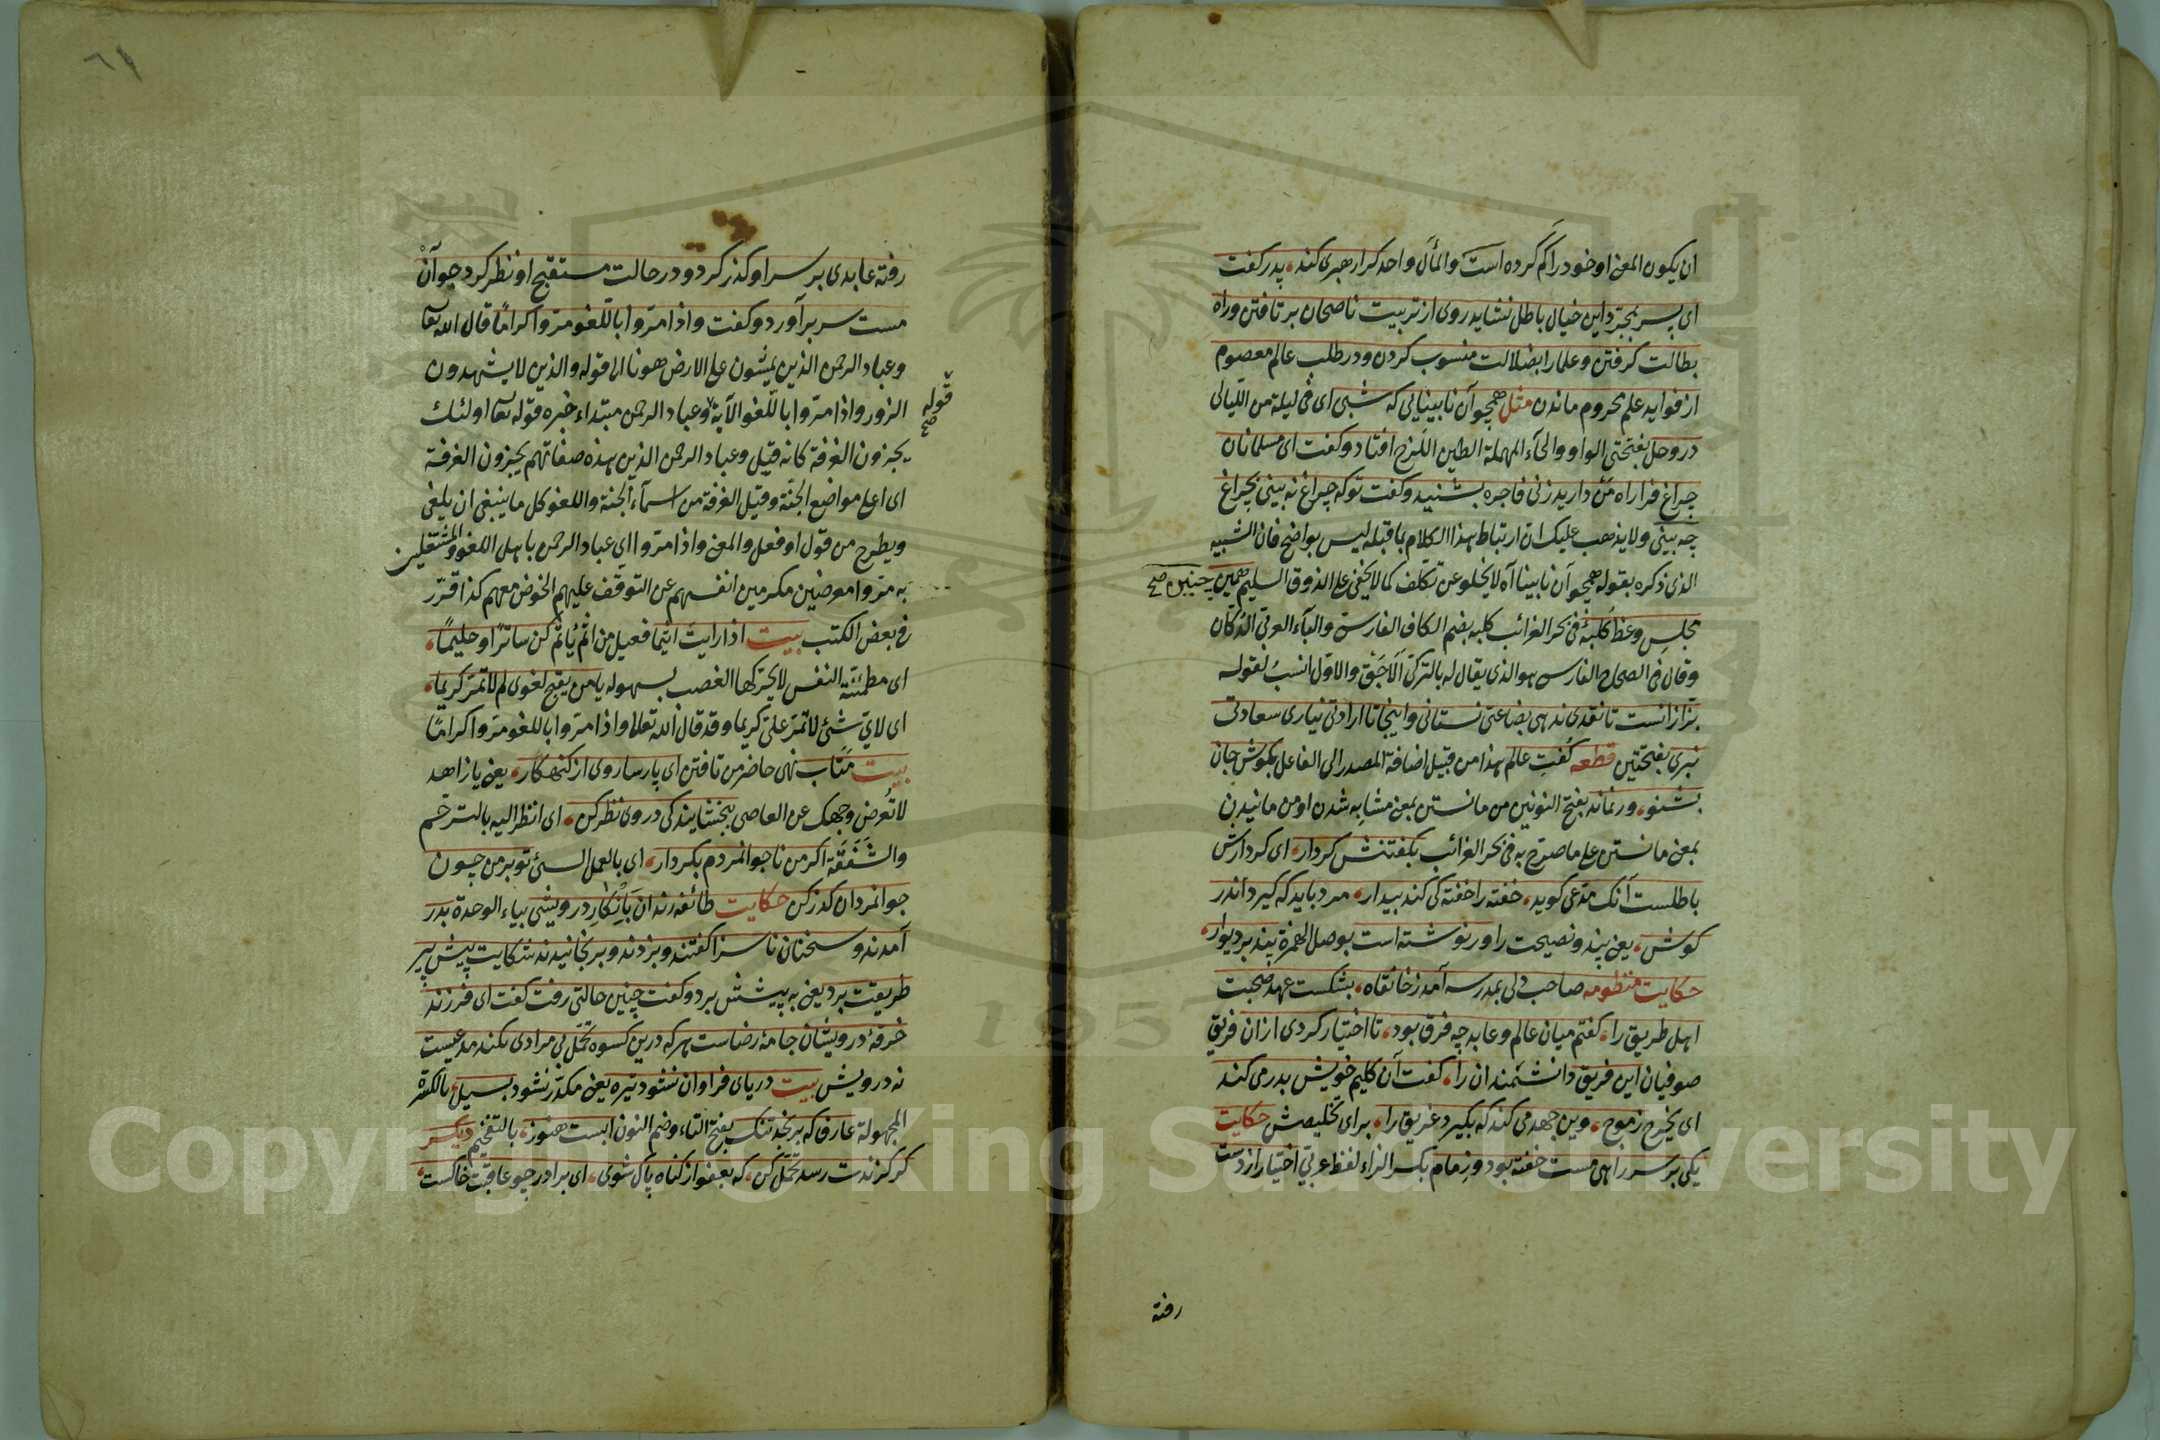 ان يكون المعنى او خود را كم كرده است والمآل واحد كرا رهبرى كند پدر كفت
اى پسر بمجرد اين خيال باطل نشايد روى از تربيت ناصحان بر تافتن وراه
بطالت كرفتن وعلما را بضلالت منسوب كردن ودر طلب عالم معصوم
از فوايد علم محروم ماندن مثل همچو آن نابينايى كه شبى اى فى ليلة من الليالى
در وحل بفتحتى الواو والحآء المهملة الطين اللزج افتاد وكفت اى مسلمانان
چراغ فرا راه من داريد زنى فاجره بشنيد وكفت تو كه چراغ نه بينى بچراغ
چه بينى ولا يذهب عليك ان ارتباط هذا الكلام بما قبله ليس بواضح فان التشبيه
الذى ذكره بقوله همچو آن نابينا اه لا يخلو عن تكلف كما لا يخفى على الذوق السليم همين
چنين صح
مجلس وعظ كلبۀ فى بحر الغرائب كلبه بضم الكاف الفارسى والبآء العربى الدكان
وقال فى الصحاح الفارسى هو الذى يقال له بالتركى آلاجق والاول انسب لقوله
بزازانست تا نقدى ندهى بضاعتى نستانى واينجا تا ارادتى نيارى سعادتى
نبرى بفتحتين قطعه كفت عالم هذا من قبيل اضافة المصدر الى الفاعل بكوش جان
بشنو ور نماند بفتح النونين من مانستن بمعنى مشابه شدن او من مانيدن
بمعنى مانستن على ما صرح به فى بحر الغرائب بكفتنش كردار اى كردارش
باطلست آنك مدعى كويد خفته را خفته كى كند بيدار مرد بايد كه كيرد اندر
كوش يعنى پند ونصيحت را ور نوشته است بوصل الهمزة پند بر ديوار
حكايت منظومه صاحب دلى بمدرسه آمد ز خانقاه بشكست عهد صحبت
اهل طريق را كفتم ميان عالم وعابد چه فرق بود تا اختيار كردى ازان فريق
صوفيان اين فريق دانشمندان را كفت آن كليم خويش بدر مى كند
اى يخرج ز موج وين جهد مى كند كه بكيرد غريق را براى تخليصش حكايت
يكى بر سر راهى مست خفته بود وزمام بكسر الزاء لفظ عربى اختيار از دست
رفته
٦٩
رفته عابدى بر سر او كذر كرد ودر حالت مستقبح او نظر كرد جوآن
مست سر بر آورد وكفت واذا مروا باللغو مروا كراما قال الله تعا
وعباد الرحمن الذين يمشون على الارض هونا الى قوله والذين لا يشهدون
الزور واذا مروا باللغو الآية وعباد الرحمن مبتداء خبره قوله تعا اولئك
قوله صح
يجزون الغرفة كانه قيل وعباد الرحمن الذين هذه صفاتهم يجزون الغرفة
اى اعلى مواضع الجنة وقيل الغرفة من اسمآء الجنة واللغو كل ما ينبغى ان يلغى
ويطرح من قول او فعل والمعنى واذا مروا اى عباد الرحمن باهل اللغو والمشتغلين
به مروا معرضين مكرمين انفسهم عن التوقف عليهم الخوض معهم كذا قرر
فى بعض الكتب بيت اذا رايت اثيما فعيل من اثم ياثم كن ساترا وحليما
اى مطمئنة النفس لا يحركها الغضب بسهولة يا من يقبح لغوى لم لا تمر كريما
اى لاى شئ لا تمر على كريما وقد قال الله تعالى واذا مروا باللغو مروا كراما
بيت متاب نهى حاضر من تافتن اى پارسا روى از كنهكار يعنى يا زاهد
لا تعرض وجهك عن العاصى ببخشايندكى در وى نظر كن اى انظر اليه بالترحم
والشفقة اكر من ناجوانمردم بكردار اى بالعمل السيئ تو بر من چون
جوانمردان كذر كن حكايت طائفه رندان بانكار درويشى بياء الوحدة بدر
آمدند وسخنان ناسزا كفتند وبزدند وبرنجانيدند شكايت پيش پير
طريقت برد يعنى به پيشش برد وكفت چنين حالتى رفت كفت اى فرزند
خرقۀ درويشان جامۀ رضاست هركه درين كسوه تحمل بى مرادى نكند مدعيست
نه درويش بيت درياى فراوان نشود تيره يعنى مكدر نشود بسيل بالكسرة
المجهولة عارف كه برنجد تنك بفتح التاء وضم النون ابست هنوز بالتفخيم ديكر
كر كزندت رسد تحمل كن كه بعفو از كناه پاك شوى اى برادر چو عاقبت خاكست